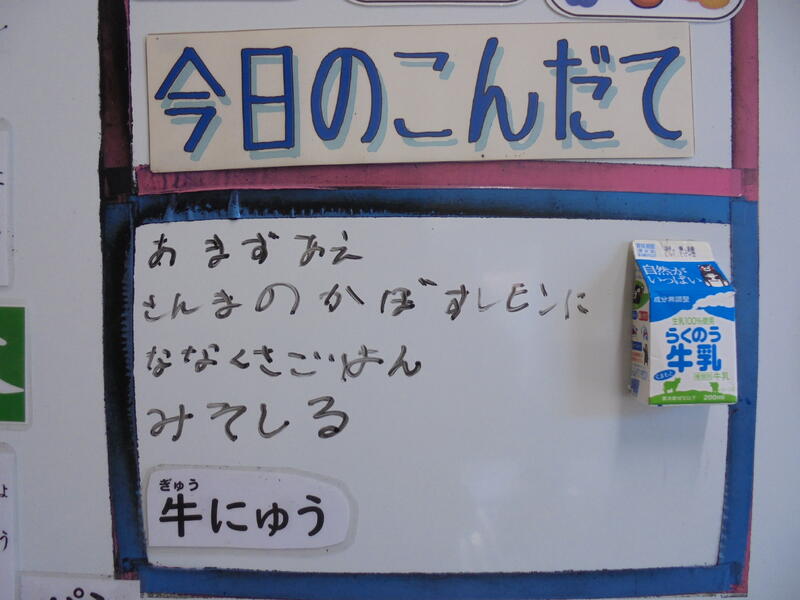 今日のこんだて
あまずあえ
さんまのかぼすレモンに
ななくさごはん
みそしる
ぎゅう
牛にゅう
自然が
いっぱい
成分無調整
生乳100%使用
らくのう
牛乳
種類別牛乳
200ml